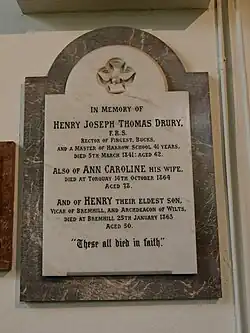 IN MEMORY OF
HENRY JOSEPH THOMAS DRURY,
F.R.S.
RECTOR OF FINGEST, BUCKS,
AND A MASTER OF HARROW SCHOOL 41 YEARS,
DIED 5TH MARCH 1841: AGED 62.
ALSO OF ANN CAROLINE HIS WIFE,
DIED AT TORQUAY 14TH OCTOBER 1864
AGED 73.
AND OF HENRY THEIR ELDEST SON,
VICAR OF BREMHILL, AND ARCHDEACON OF WILTS,
DIED AT BREMHILL 25TH JANUARY 1863
AGED 50.
"These all died in faith."